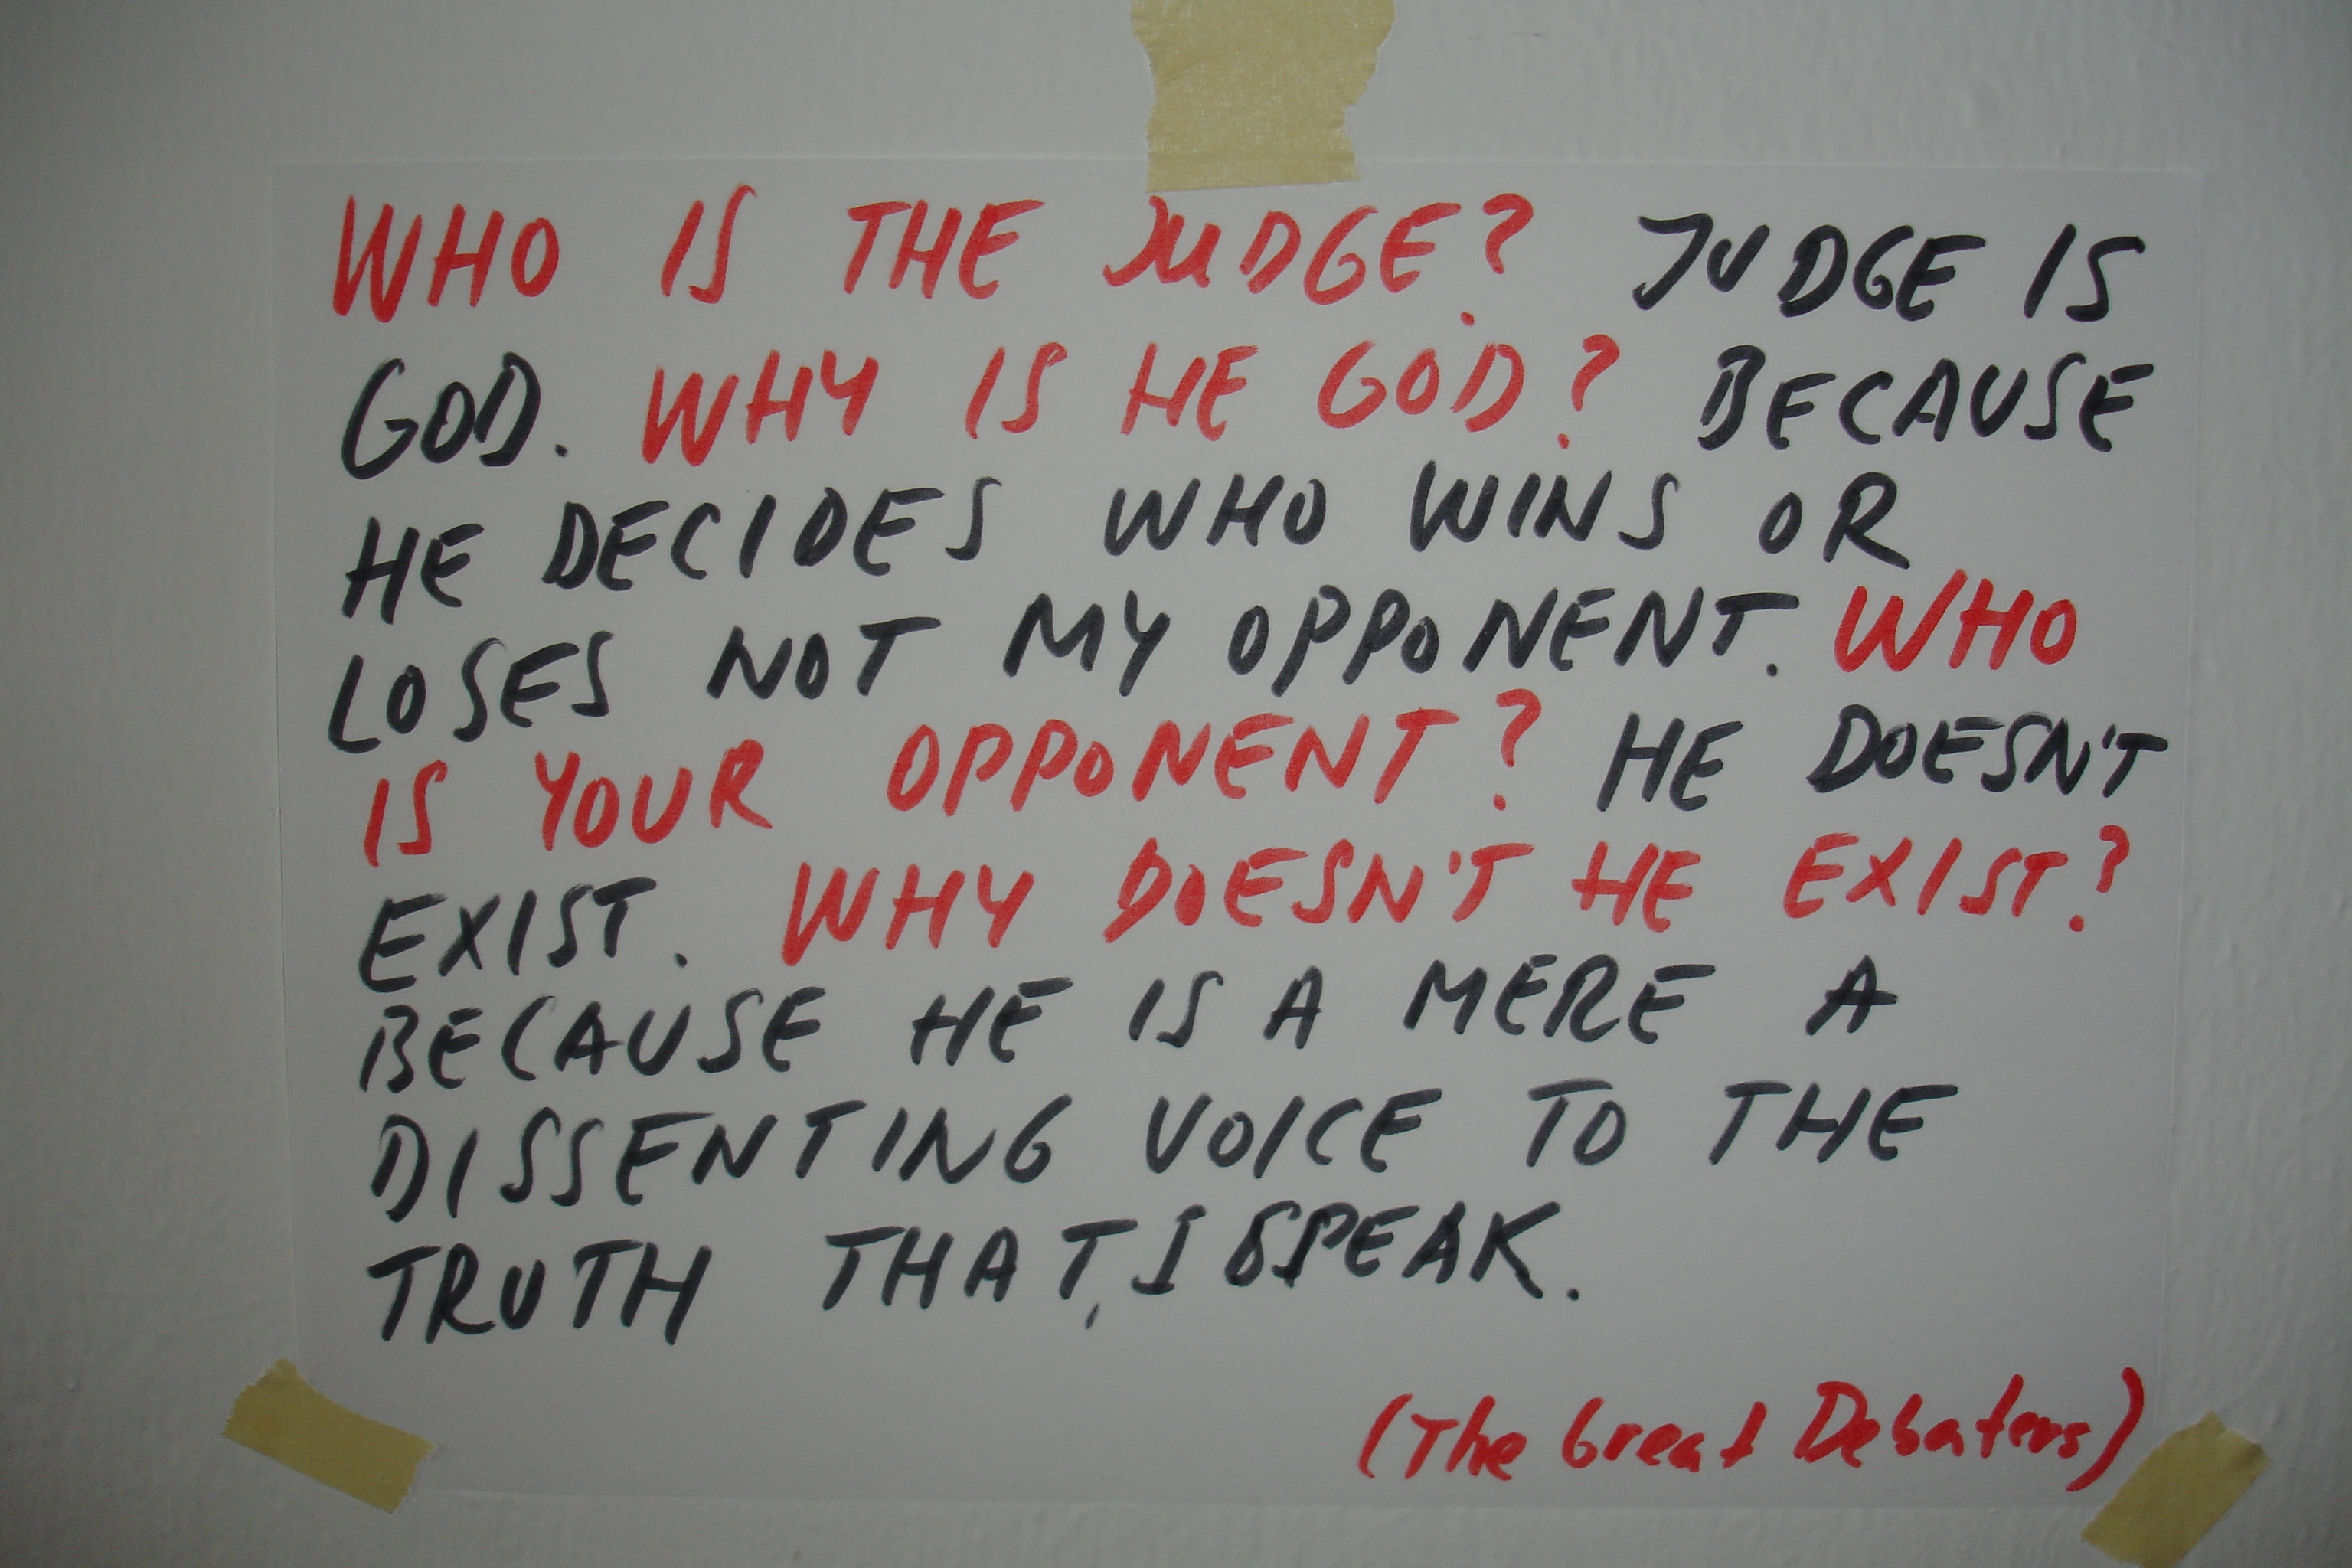 WHO IS THE JUDGE? JUDGE IS
GOD. WHY IS HE GOD? BECAUSE
HE DECIDES WHO WINS OR
LOSES NOT MY OPPONENT. WHO
IS YOUR OPPONENT? HE DOESN'T
EXIST. WHY DOESN'T HE EXIST?
BECAUSE HE IS A MERE A
DISSENTING VOICE TO THE
TRUTH THAT, I SPEAK.
(The Great Debaters)